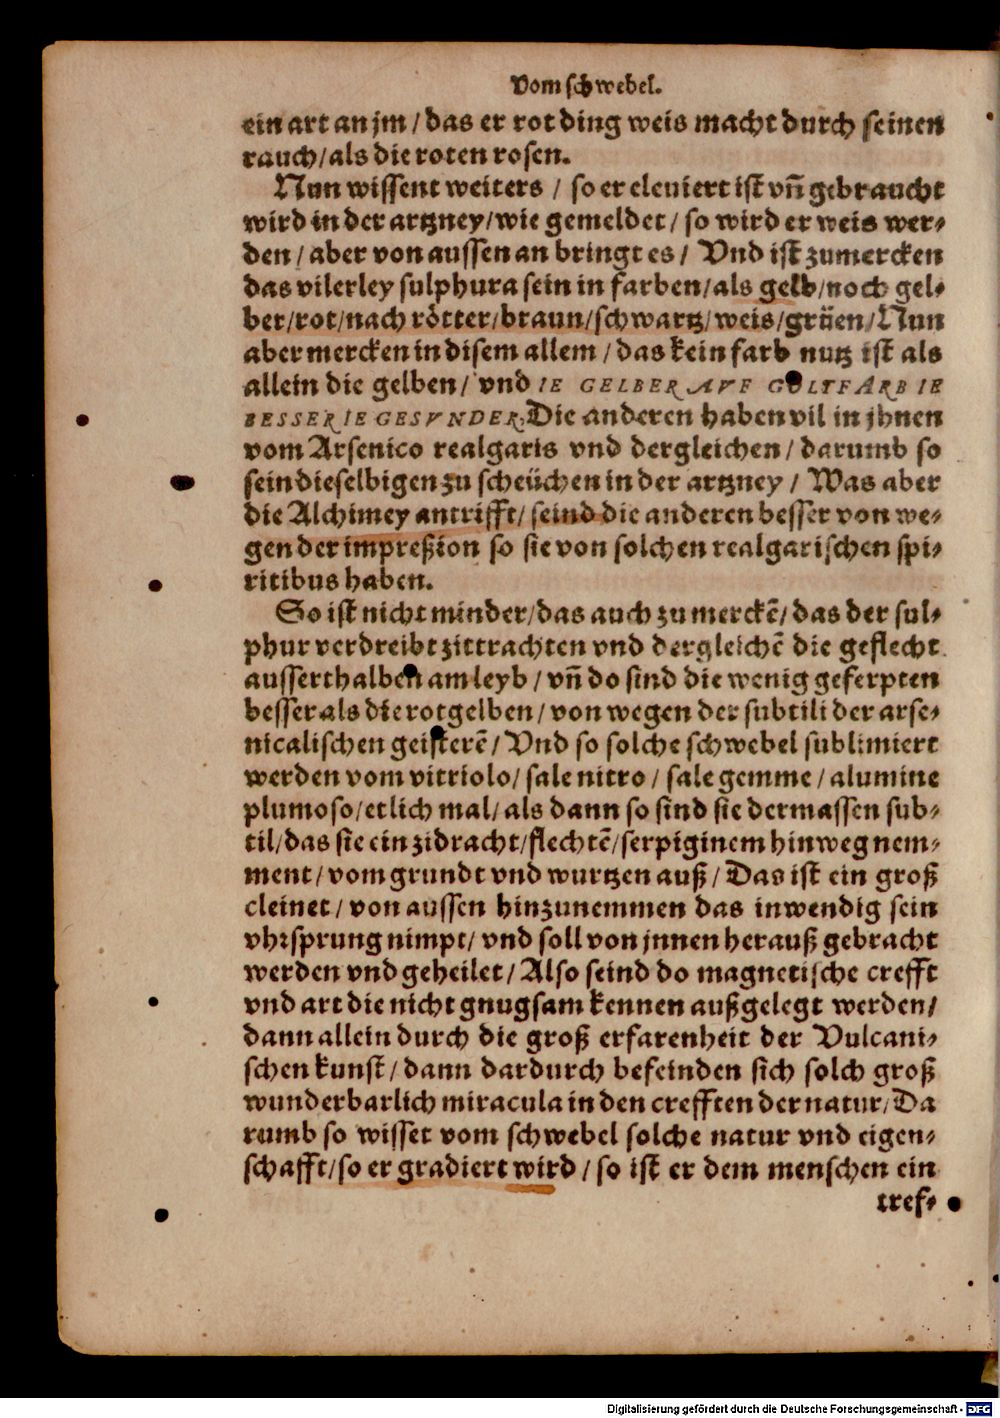 Vom schwebel.
ein art an jm / das er rot ding weis macht durch seinen
rauch / als die roten rosen.
Nun wissent weiters / so er eleuiert ist vñ gebraucht
wird in der artzney / wie gemeldet / so wird er weis wer⸗
den / aber von aussen an bringt es / Vnd ist zumercken
das vilerley sulphura sein in farben / als gelb / noch gel⸗
ber / rot / nach rötter / braun / schwartz / weis / grüen / Nun
aber mercken in disem allem / das kein farb nutz ist als
allein die gelben / vnd IE GELBER AVF GOLTFARB IE
BESSER IE GESVNDER. Die anderen haben vil in jhnen
vom Arsenico realgaris vnd dergleichen / darumb so
sein dieselbigen zu scheüchen in der artzney / Was aber
die Alchimey antrifft / seind die anderen besser von we⸗
gen der impreßion so sie von solchen realgarischen spi⸗
ritibus haben.
So ist nicht minder / das auch zu merckē / das der sul⸗
phur verdreibt zittrachten vnd dergleichē die geflecht
ausserthalben am leyb / vñ do sind die wenig geferpten
besser als die rotgelben / von wegen der subtili der arse⸗
nicalischen geisterē / Vnd so solche schwebel sublimiert
werden vom vitriolo / sale nitro / sale gemme / alumine
plumoso / etlich mal / als dann so sind sie dermassen sub⸗
til / das sie ein zidracht / flechtē / serpiginem hinweg nem⸗
ment / vom grundt vnd wurtzen auß / Das ist ein groß
cleinet / von aussen hinzunemmen das inwendig sein
vhrsprung nimpt / vnd soll von jnnen herauß gebracht
werden vnd geheilet / Also seind do magnetische crefft
vnd art die nicht gnugsam kennen außgelegt werden /
dann allein durch die groß erfarenheit der Vulcani⸗
schen kunst / dann dardurch befeinden sich solch groß
wunderbarlich miracula in den crefften der natur / Da
rumb so wisset vom schwebel solche natur vnd eigen⸗
schafft / so er gradiert wird / so ist er dem menschen ein
tref⸗
Digitalisierung gefördert durch die Deutsche Forschungsgemeinschaft - DFG